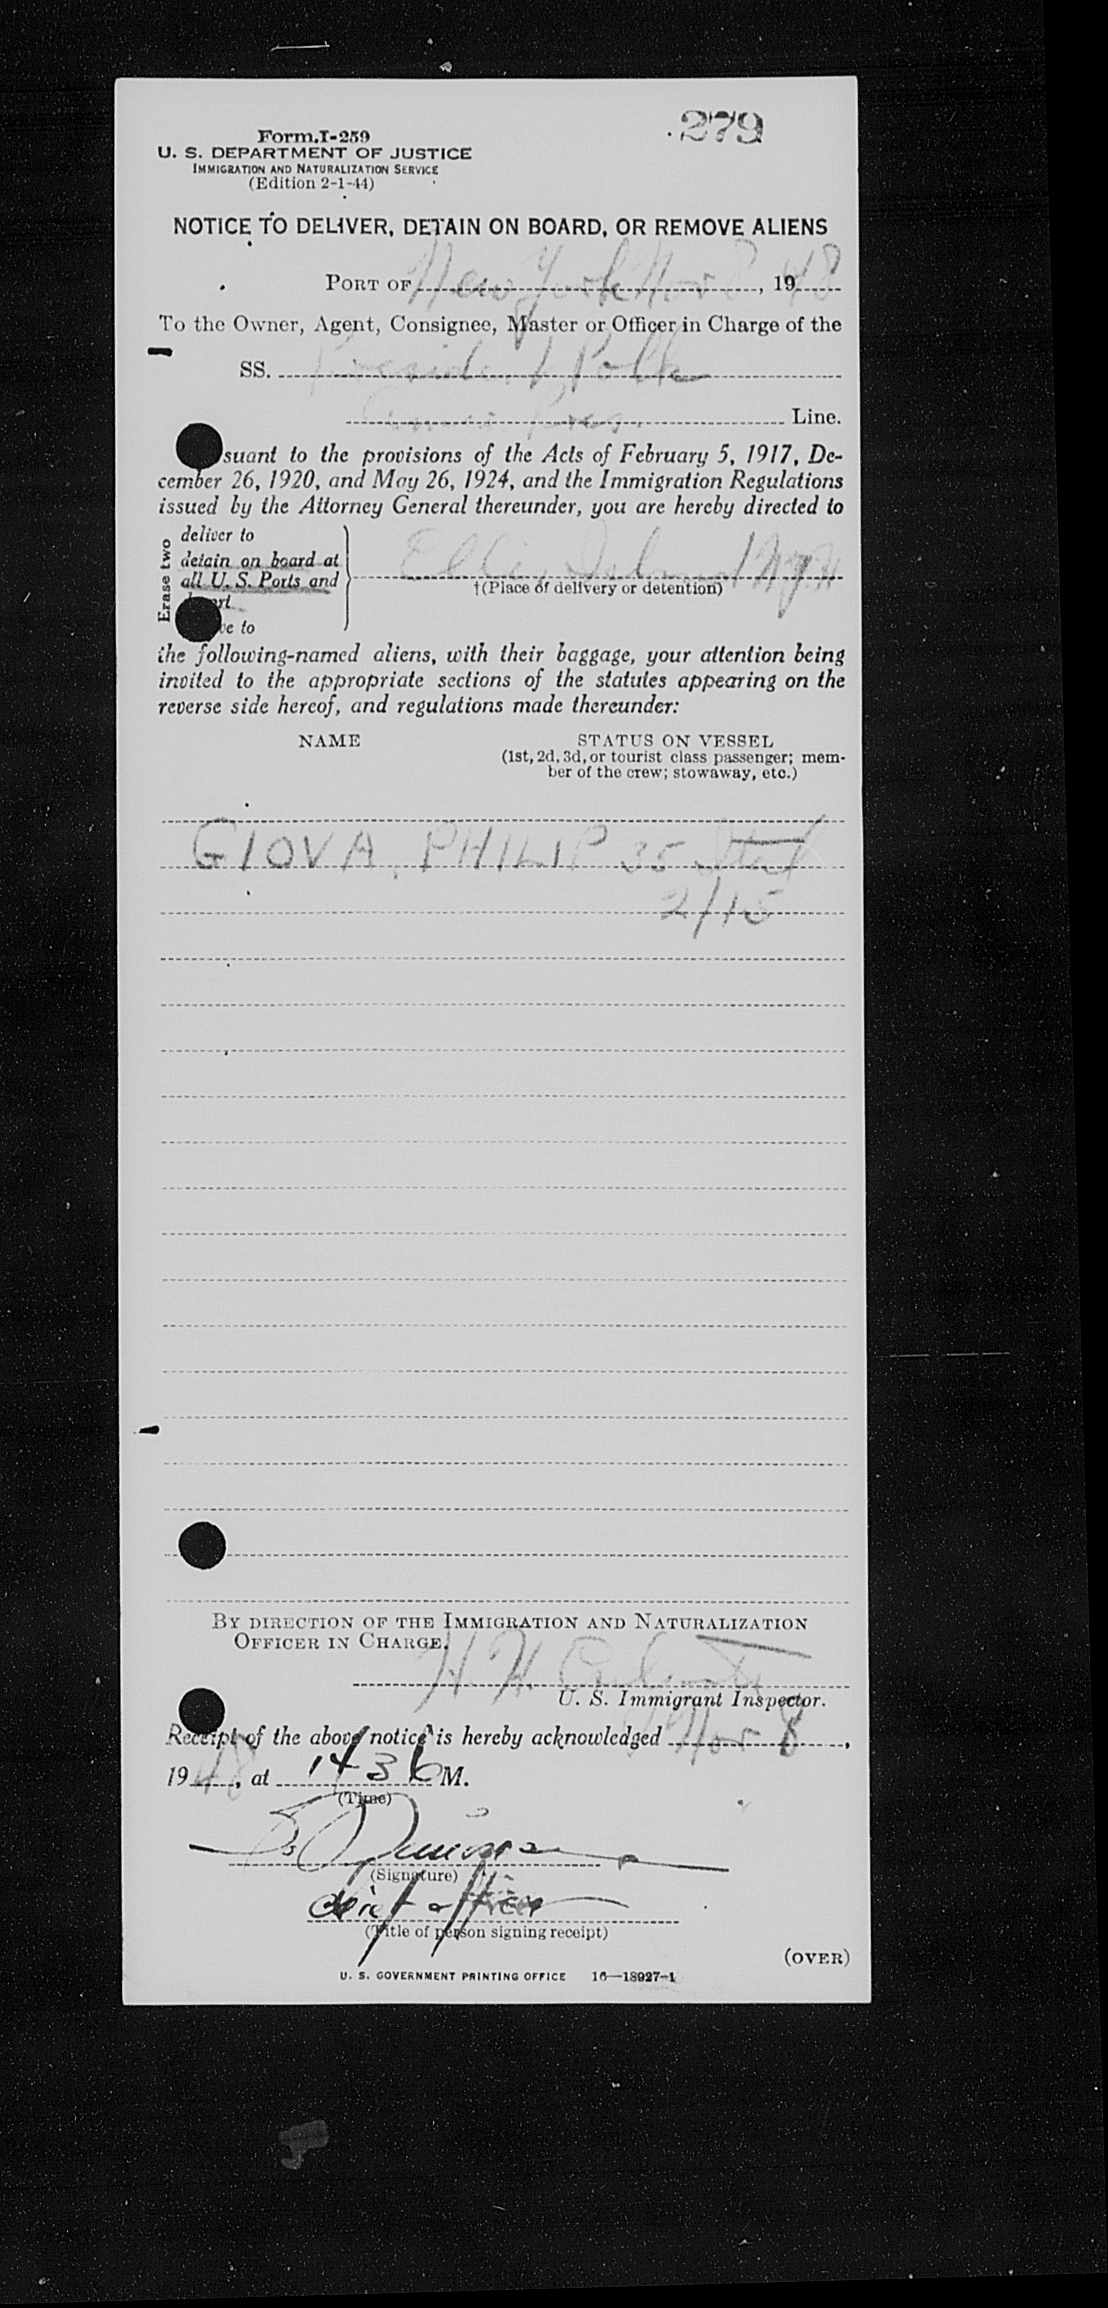 279
Form I-259
U. S. DEPARTMENT OF JUSTICE
IMMIGRATION AND NATURALIZATION SERVICE
(Edition 2-1-44)
NOTICE TO DELIVER, DETAIN ON BOARD, OR REMOVE ALIENS
PORT OF New York Nov 8, 1948
To the Owner, Agent, Consignee, Master or Officer in Charge of the
SS. President Polk
Amer Pres. Line.
suant to the provisions of the Acts of February 5, 1917, De-
cember 26, 1920, and May 26, 1924, and the Immigration Regulations
issued by the Attorney General thereunder, you are hereby directed to
Erase two
deliver to
detain on board at
all U. S. Ports and
rt
ve to
Ellis Island N.Y.H
†(Place of delivery or detention)
the following-named aliens, with their baggage, your attention being
invited to the appropriate sections of the statutes appearing on the
reverse side hereof, and regulations made thereunder:
NAME STATUS ON VESSEL
(1st, 2d, 3d, or tourist class passenger; mem-
ber of the crew; stowaway, etc.)
GIOVA, PHILIP 35
2/15
BY DIRECTION OF THE IMMIGRATION AND NATURALIZATION
OFFICER IN CHARGE.
H. H.
U. S. Immigrant Inspector.
Receipt of the above notice is hereby acknowledged Nov 8,
1948, at 1436 M.
(Time)
(Signature)
Chief officer
(Title of person signing receipt)
(OVER)
U. S. GOVERNMENT PRINTING OFFICE 16—18927-1